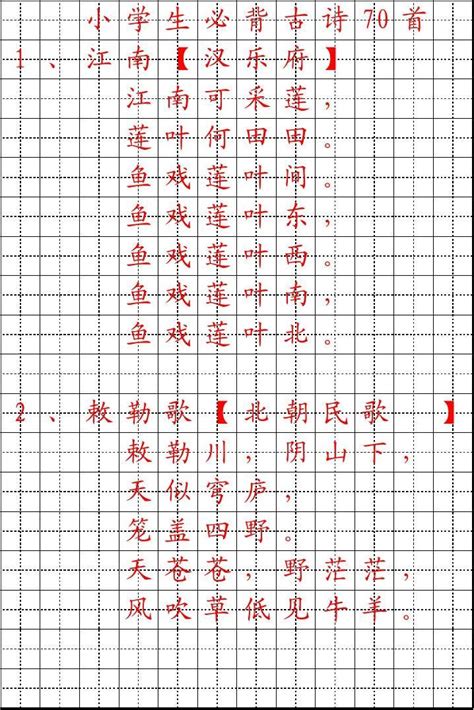 小学生必背古诗70首
1、江南【汉乐府】
江南可采莲，
莲叶何田田。
鱼戏莲叶间。
鱼戏莲叶东，
鱼戏莲叶西。
鱼戏莲叶南，
鱼戏莲叶北。
2、敕勒歌【北朝民歌 】
敕勒川，阴山下，
天似穹庐，
笼盖四野。
天苍苍，野茫茫，
风吹草低见牛羊。